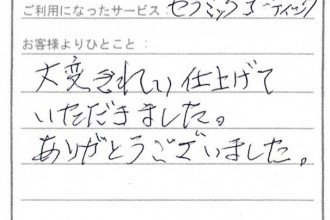 ご利用になったサービス：セラミックコーティング
お客様よりひとこと：
大変きれいに仕上げて
いただきました。
ありがとうございました。